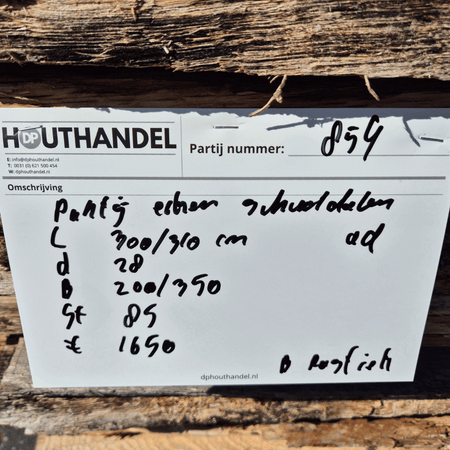 HOUTHANDEL
DP
E: info@dphouthandel.nl
T: 0031 (0) 621 500 454
W: dphouthandel.nl
Partij nummer: 859
Omschrijving
Partij eiken schaaldelen
L 300/310 cm ad
d 28
B 200/350
St 85
€ 1650
dphouthandel.nl
B